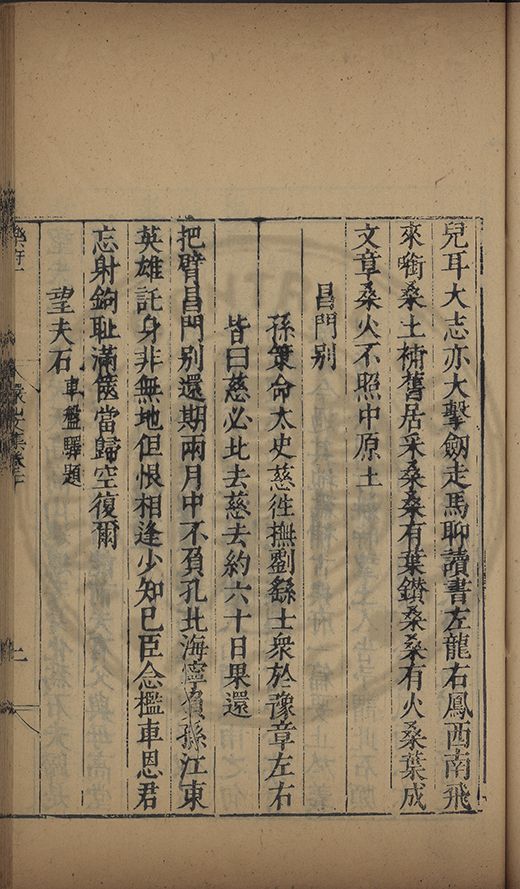 兒耳大志亦大擊劒走馬聊讀書左龍右鳳西南飛
來啣桑土補舊居采桑桑有葉鑚桑桑有火桑葉成
文章桑火不照中原土
昌門別
孫策命太史慈徃撫劉繇士衆於豫章左右
皆曰慈必北去慈去約六十日果還
把臂昌門別還期兩月中不負孔北海寧負孫江東
英雄託身非無地但恨相逢少知已臣念檻車恩君
忘射鉤耻滿篋當歸空復爾
望夫石 車盤驛題